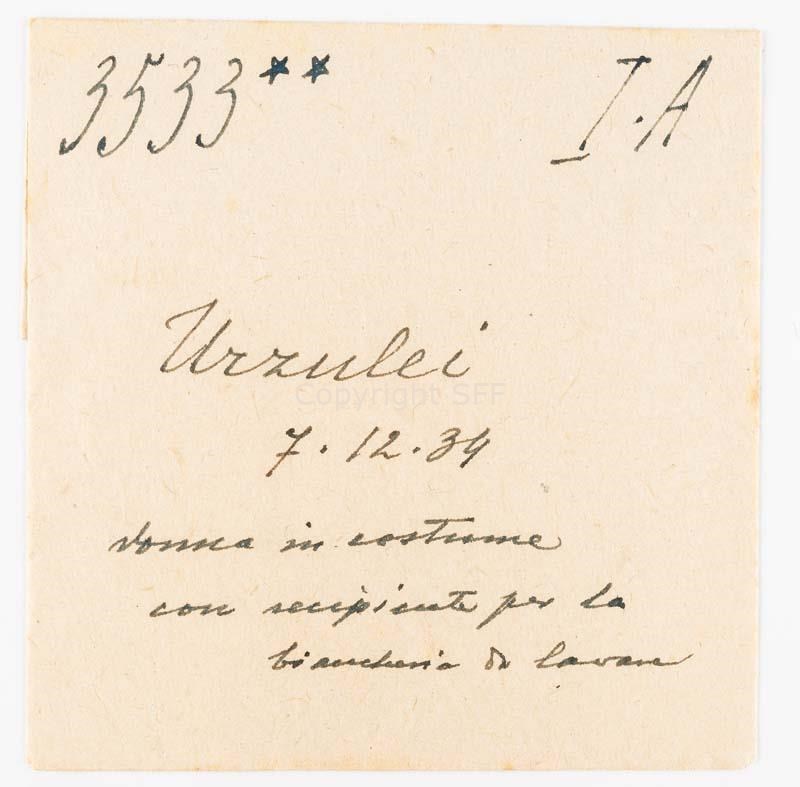 3533** I.A
Urzulei
Copyright SFF
7.12.34
donna in costume
con recipiente per la
biancheria da lavare